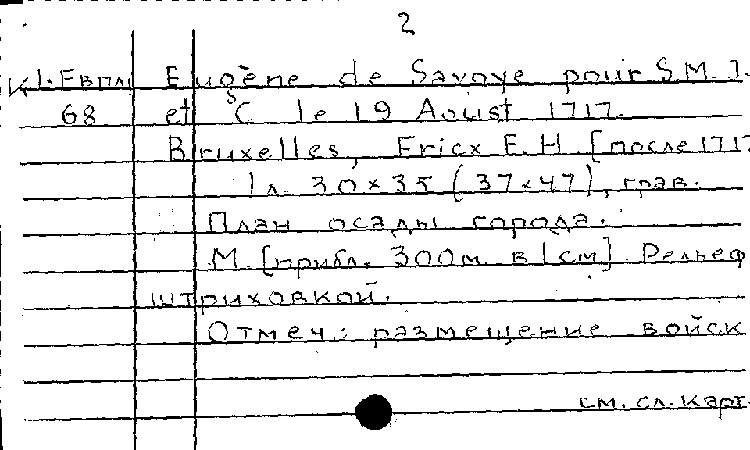 2
К 1. Евпл Eugène de Savoye pour S.M. I.
68 et C le 19 Aoust 1717.
Bruxelles, Fricx E.H. [после 1717
1 л. 30×35 (37×47), грав.
План осады города.
М. [прибл. 300м. в 1 см] Рельеф
штриховкой.
Отмеч.: размещение войск
см. сл. карт.